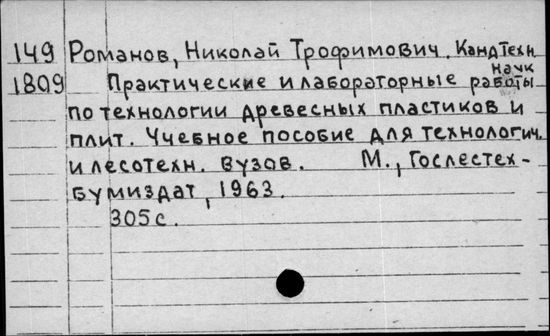 149 Романов, Николай Трофимович. Канд техн
наук
1809 Практические и лабораторные работы
по технологии древесных пластиков и
плит. Учебное пособие для технологич.
и лесотехн. вузов. М., Гослестех-
бумиздат, 1963.
305 с.